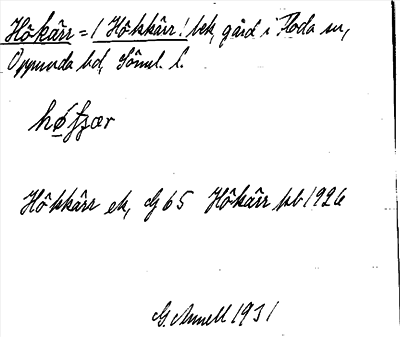 Hökärr = (Hökkärr! bek, gård i Floda sn,
Oppunda hd, Söml. l.
Hökkärr ek, Gf 65 Hökärr jbl 1926
G. Annell 1931